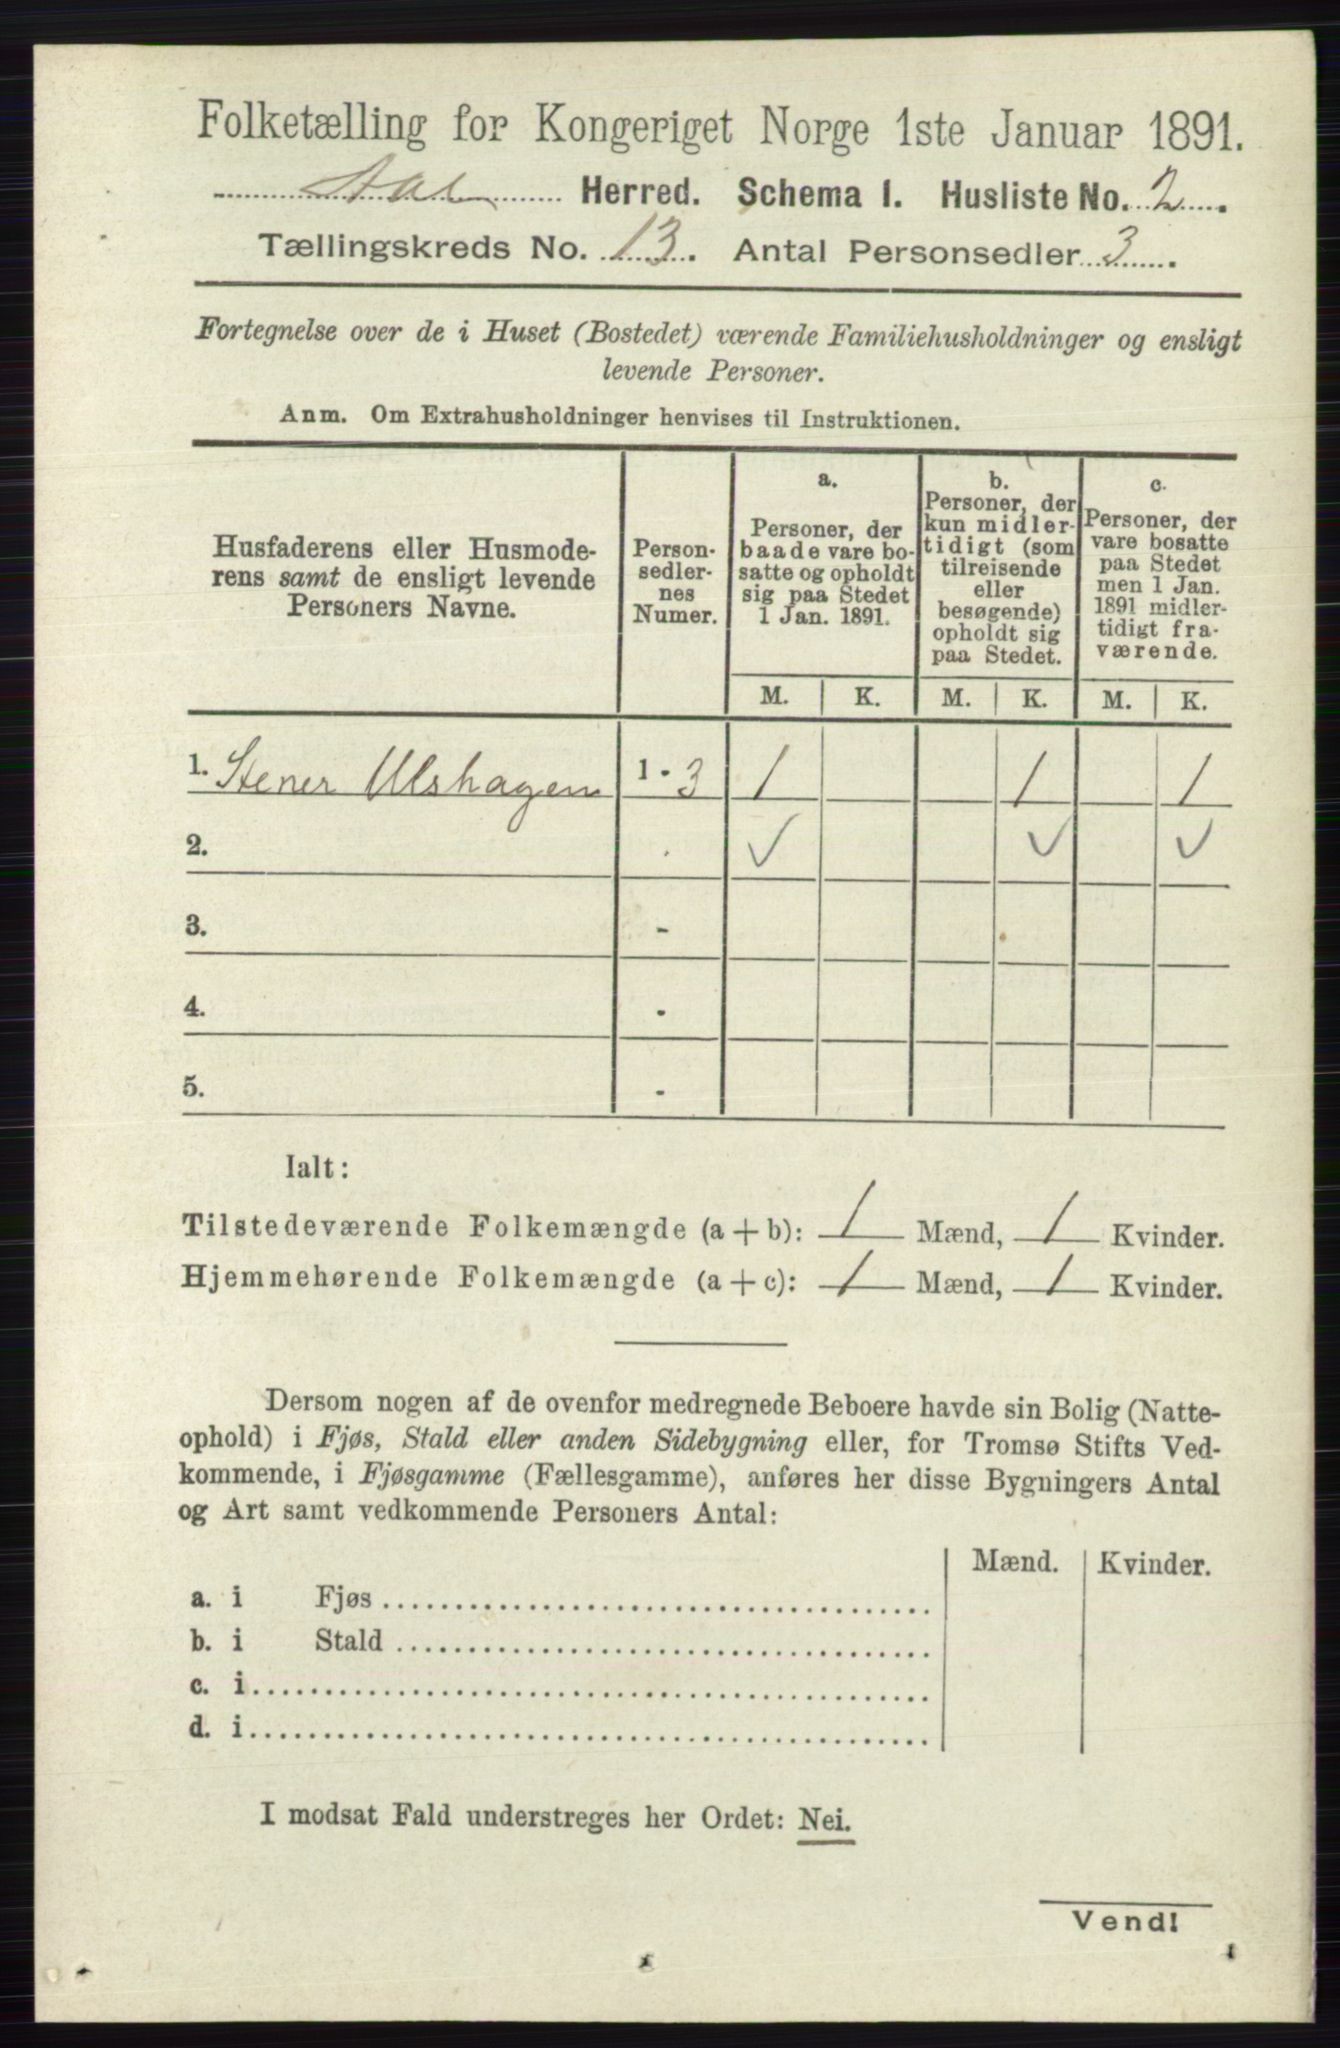 Folketælling for Kongeriget Norge 1ste Januar 1891.
Aal Herred. Schema I. Husliste No. 2.
Tællingskreds No. 13. Antal Personsedler 3.
Fortegnelse over de i Huset (Bostedet) værende Familiehusholdninger og ensligt
levende Personer.
Anm. Om Extrahusholdninger henvises til Instruktionen.
Husfaderens eller Husmode-
rens samt de ensligt levende
Personers Navne.
Person-
sedler-
nes
Numer.
a.
Personer, der
baade vare bo-
satte og opholdt
sig paa Stedet
1 Jan. 1891.
b.
Personer, der
kun midler-
tidigt (som
tilreisende
eller
besøgende)
opholdt sig
paa Stedet.
c.
Personer, der
vare bosatte
paa Stedet
men 1 Jan.
1891 midler-
tidigt fra-
værende.
M. K. M. K. M. K.
1. Stener Ulshagen 1 - 3 1 1 1
2. ✓ ✓ ✓
3. -
4. -
5. -
Ialt:
Tilstedeværende Folkemængde (a + b): 1 Mænd, 1 Kvinder.
Hjemmehørende Folkemængde (a + c): 1 Mænd, 1 Kvinder.
Dersom nogen af de ovenfor medregnede Beboere havde sin Bolig (Natte-
ophold) i Fjøs, Stald eller anden Sidebygning eller, for Tromsø Stifts Ved-
kommende, i Fjøsgamme (Fællesgamme), anføres her disse Bygningers Antal
og Art samt vedkommende Personers Antal:
Mænd. Kvinder.
a. i Fjøs
b. i Stald
c. i
d. i
I modsat Fald understreges her Ordet: Nei.
Vend!